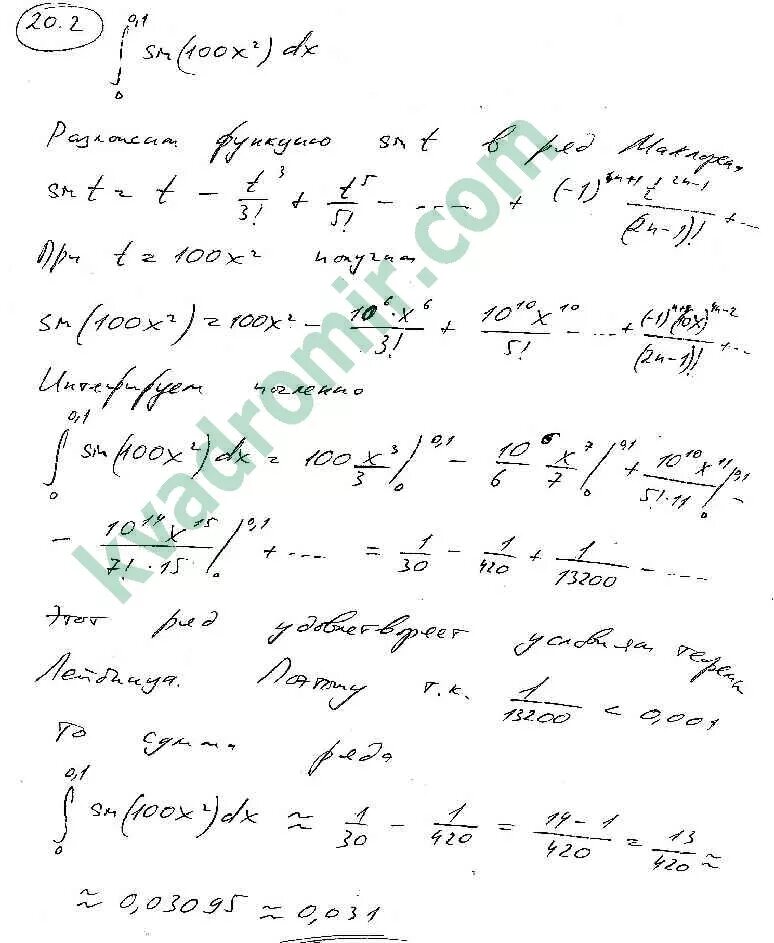 20.2
∫₀^{0,1} sin(100x²) dx
Разложим функцию sin t в ряд Маклорена
sin t = t - t³/3! + t⁵/5! - .... + (-1)^{n+1} t^{2n-1}/(2n-1)! + ...
При t = 100x² получим
sin(100x²) = 100x² - 10⁶·x⁶/3! + 10¹⁰x¹⁰/5! - ... + (-1)^{n+1}(10x)^{4n-2}/(2n-1)! + ...
Интегрируем почленно
∫₀^{0,1} sin(100x²)dx = 100 x³/3 |₀^{0,1} - 10⁶/6 x⁷/7 |₀^{0,1} + 10¹⁰x¹¹/5!·11 |₀^{0,1} -
- 10¹⁴x¹⁵/7!·15 |₀^{0,1} + .... = 1/30 - 1/420 + 1/13200 - ....
Этот ряд удовлетворяет условиям теоремы
Лейбница. Поэтому т.к. 1/13200 < 0,001
то сумма ряда
∫₀^{0,1} sin(100x²)dx ≈ 1/30 - 1/420 = 14-1/420 = 13/420 ≈
≈ 0,03095 ≈ 0,031
kvadromir.com